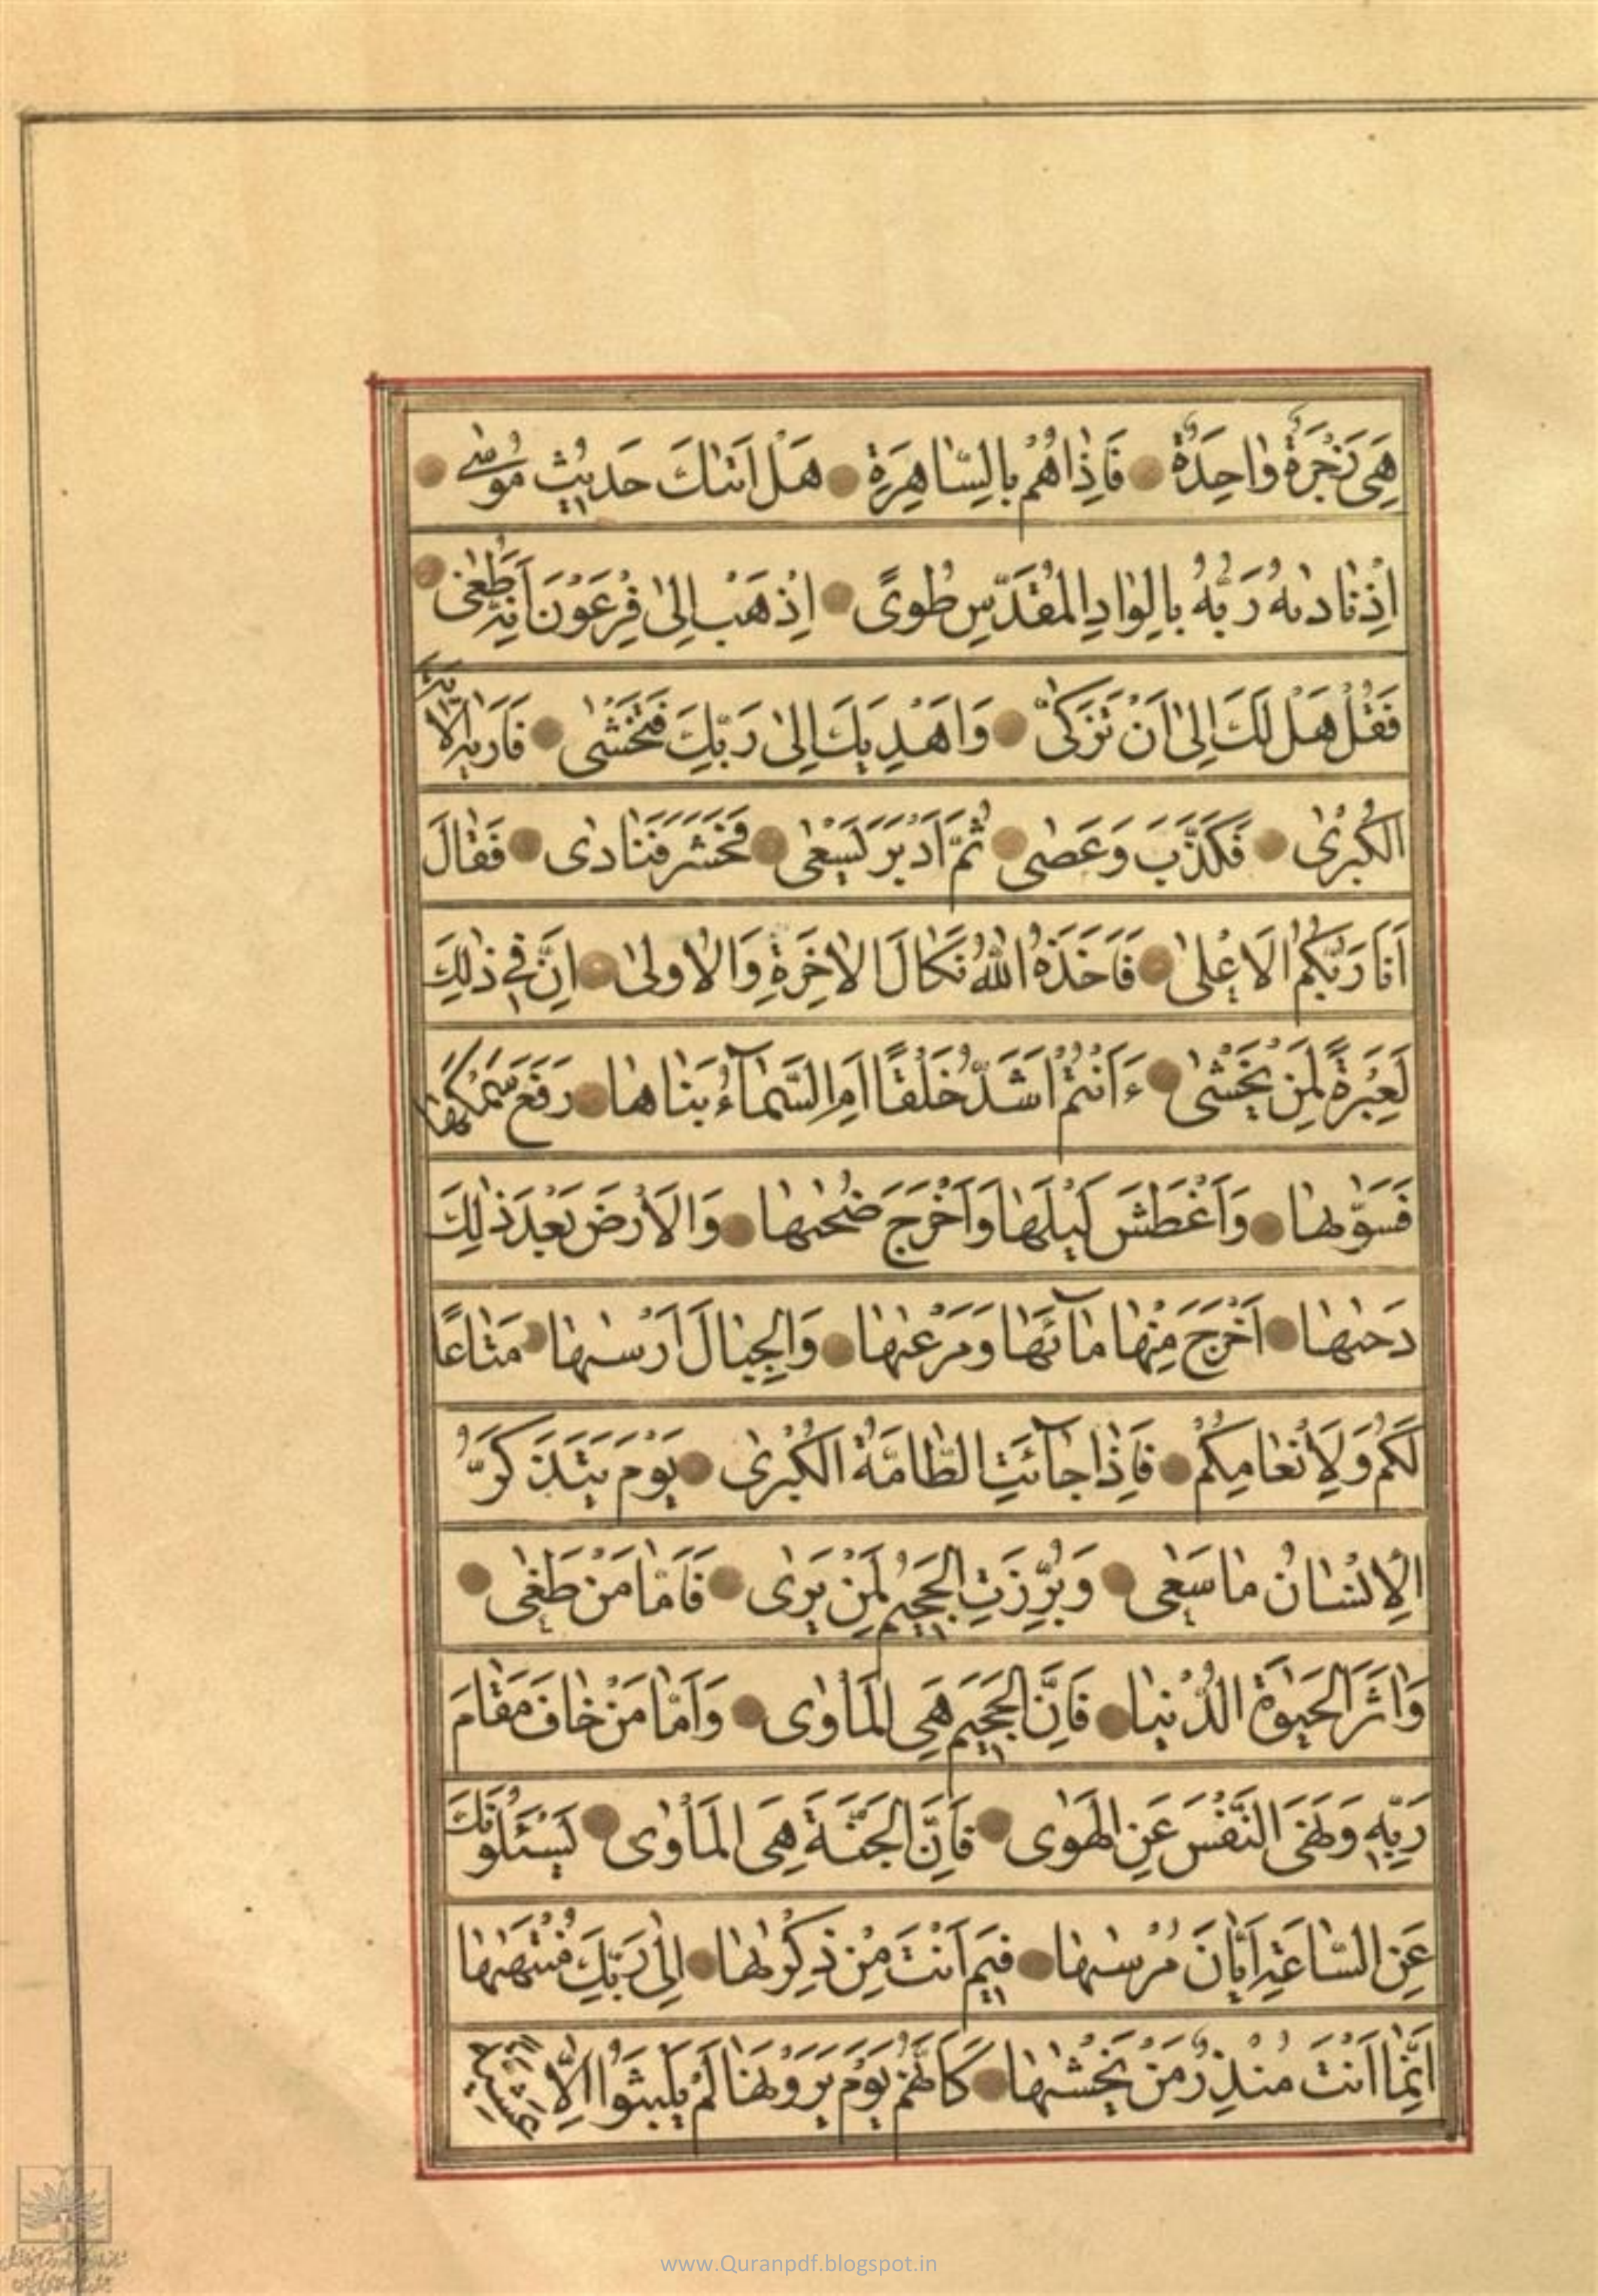 هِىَ زَجْرَةٌ واحِدَةٌ فَاِذاهُمْ بِالسّاهِرَةِ هَلْ اَتٰىكَ حَديثُ مُوسٰى
اِذْ نادٰىهُ رَبُّهُ بِالْوادِ الْمُقَدَّسِ طُوىً اِذْهَبْ اِلىٰ فِرْعَوْنَ اِنَّهُ طَغٰى
فَقُلْ هَلْ لَكَ اِلىٰ اَنْ تَزَكّىٰ وَاَهْدِيَكَ اِلىٰ رَبِّكَ فَتَخْشىٰ فَاَرٰيهُ الْاٰيَةَ
الْكُبْرىٰ فَكَذَّبَ وَعَصٰى ثُمَّ اَدْبَرَ يَسْعٰى فَحَشَرَ فَنادٰى فَقالَ
اَنَا رَبُّكُمُ الْاَعْلىٰ فَاَخَذَهُ اللّٰهُ نَكالَ الْاٰخِرَةِ وَالْاُولىٰ اِنَّ فى ذٰلِكَ
لَعِبْرَةً لِمَنْ يَخْشٰى ءَاَنْتُمْ اَشَدُّ خَلْقًا اَمِ السَّمآءُ بَناها رَفَعَ سَمْكَها
فَسَوّٰىها وَاَغْطَشَ لَيْلَها وَاَخْرَجَ ضُحٰىها وَالْاَرْضَ بَعْدَ ذٰلِكَ
دَحٰىها اَخْرَجَ مِنْها مآئَها وَمَرْعٰىها وَالْجِبالَ اَرْسٰىها مَتاعًا
لَكُمْ وَلِاَنْعامِكُمْ فَاِذا جآئَتِ الطّامَّةُ الْكُبْرىٰ يَوْمَ يَتَذَكَّرُ
الْاِنْسانُ ما سَعٰى وَبُرِّزَتِ الْجَحيمُ لِمَنْ يَرىٰ فَاَمّا مَنْ طَغٰى
وَاٰثَرَ الْحَيٰوةَ الدُّنْيا فَاِنَّ الْجَحيمَ هِىَ الْمَأْوٰى وَاَمّا مَنْ خافَ مَقامَ
رَبِّهِ وَنَهَى النَّفْسَ عَنِ الْهَوٰى فَاِنَّ الْجَنَّةَ هِىَ الْمَأْوٰى يَسْئَلُونَكَ
عَنِ السّاعَةِ اَيّانَ مُرْسٰىها فيمَ اَنْتَ مِنْ ذِكْرٰىها اِلىٰ رَبِّكَ مُنْتَهٰىها
اِنَّما اَنْتَ مُنْذِرُ مَنْ يَخْشٰىها كَاَنَّهُمْ يَوْمَ يَرَوْنَها لَمْ يَلْبَثُوا اِلّا عَشِيَّةً
www.Quranpdf.blogspot.in